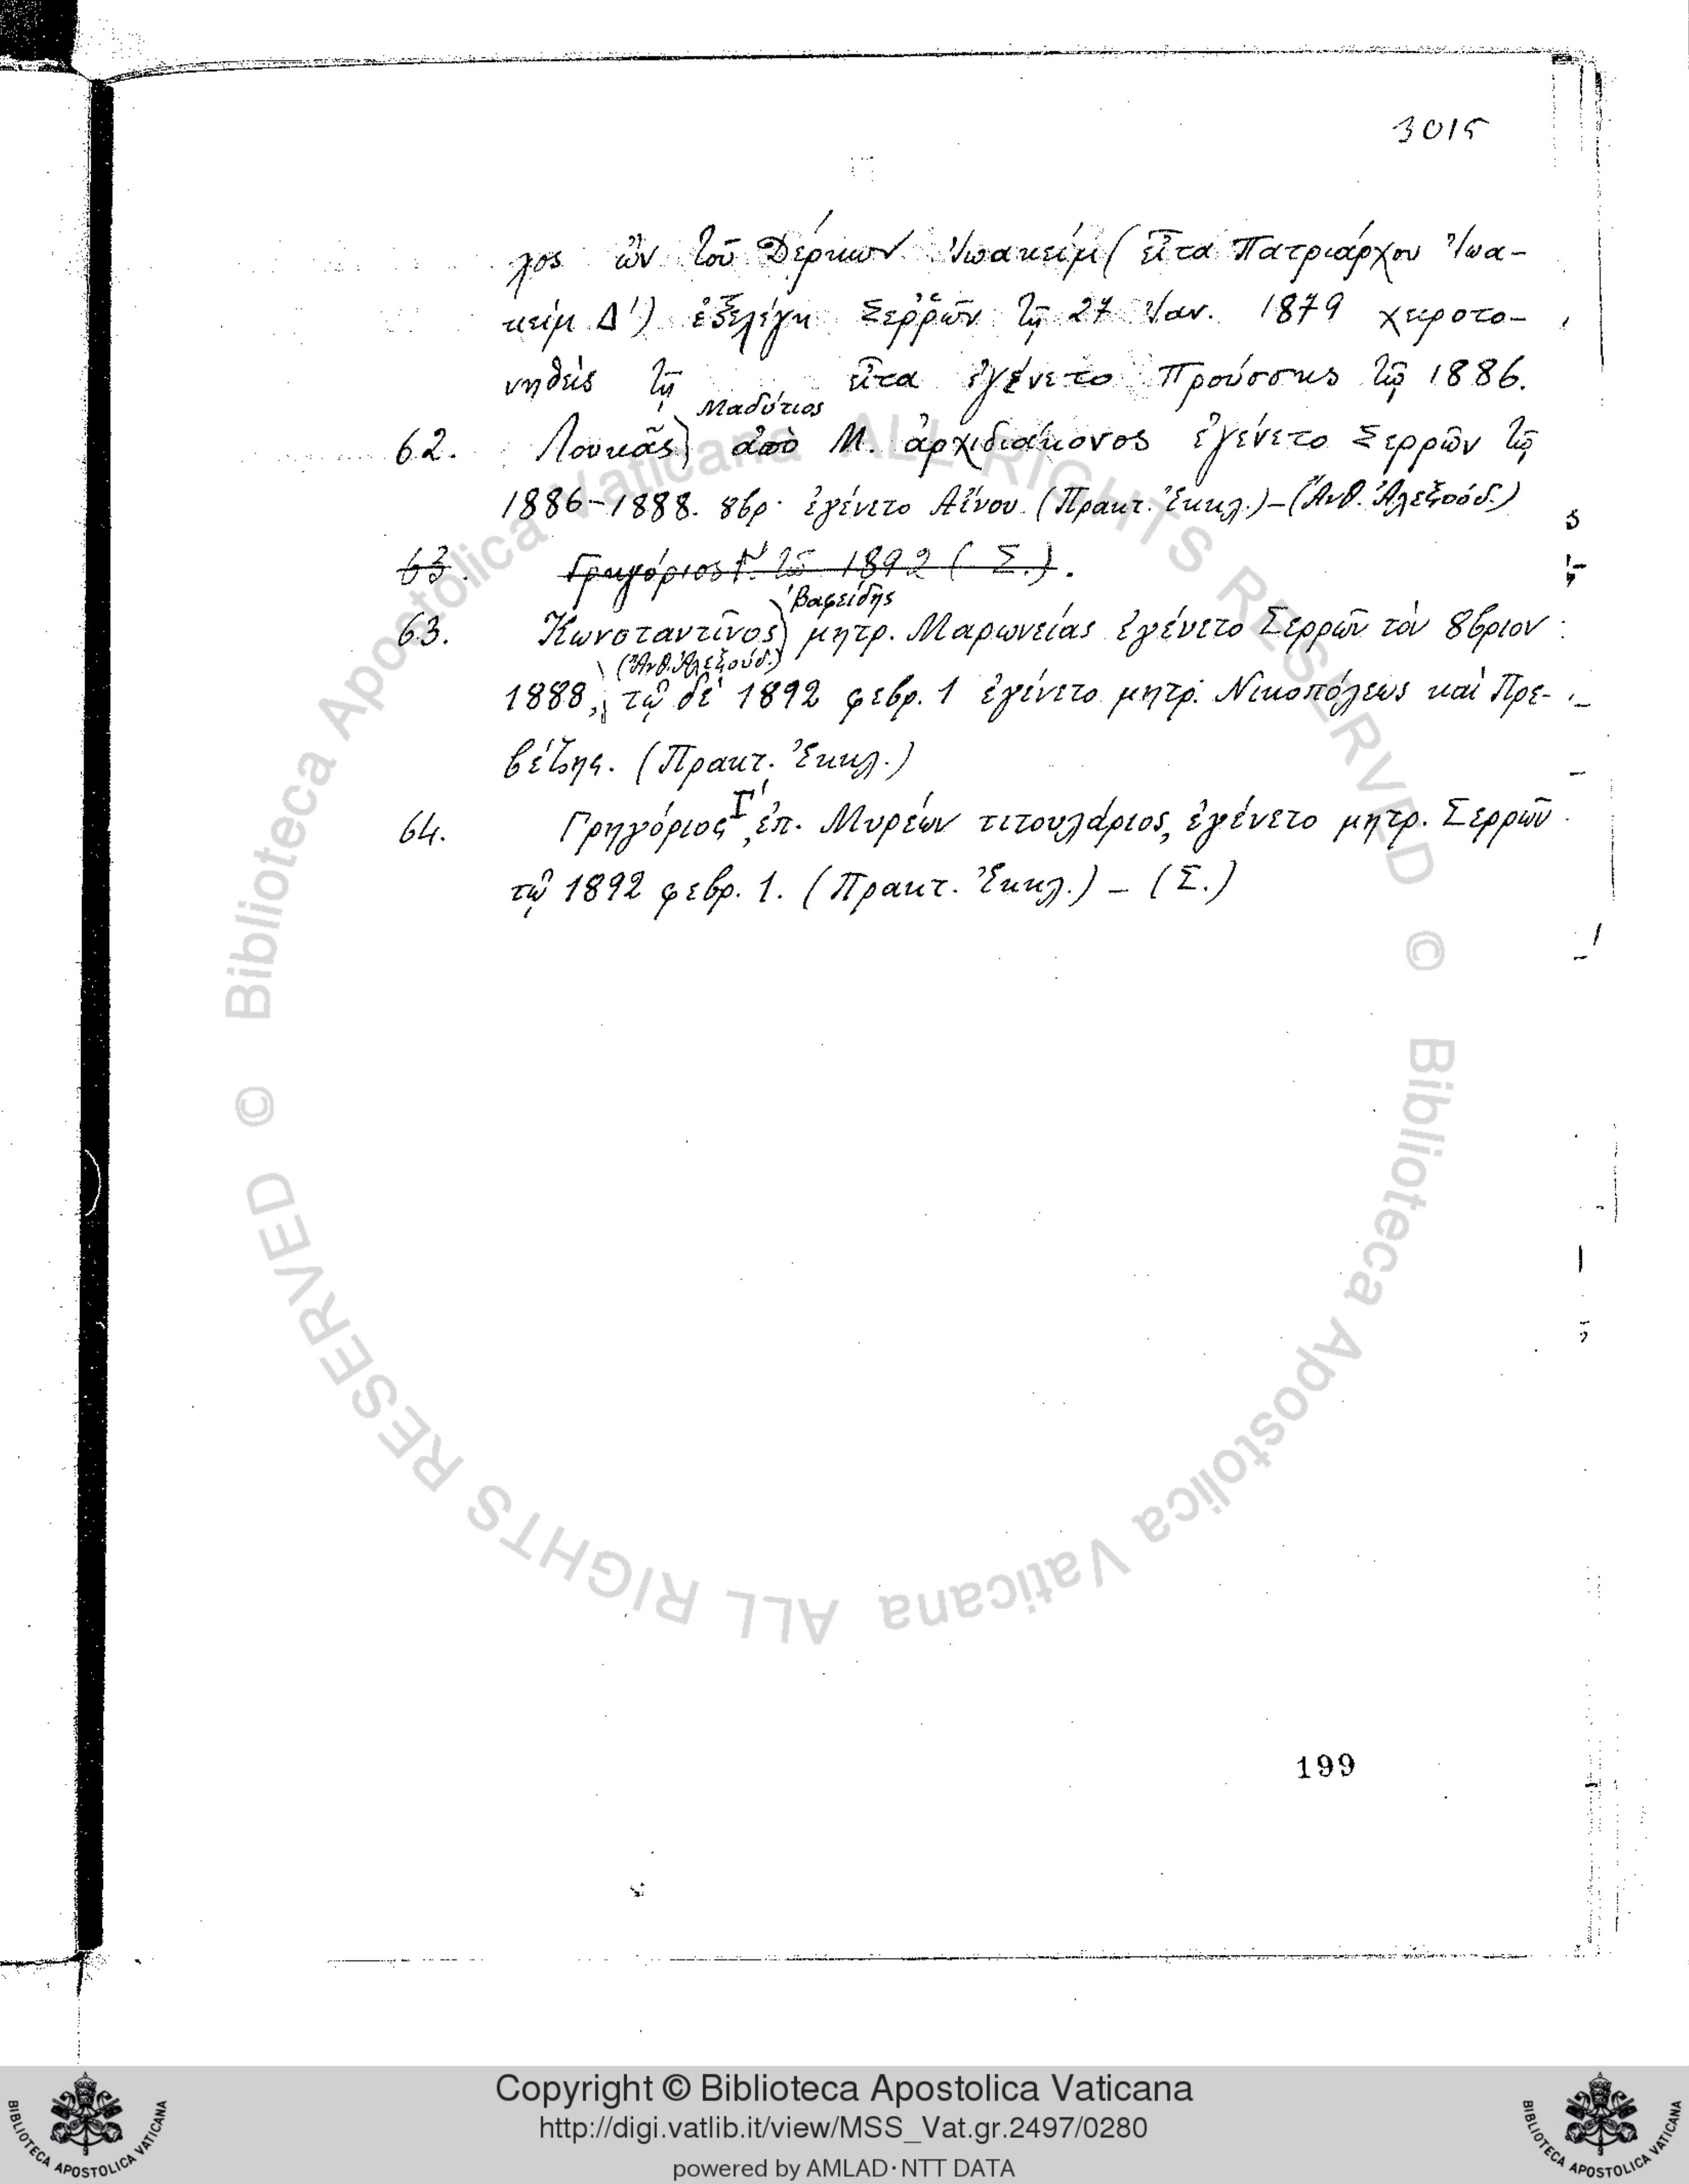 3015
λος ὢν τοῦ Δέρκων Ἰωακεὶμ (εἶτα Πατριάρχου Ἰωα-
κεὶμ Δ') ἐξελέγη Σερρῶν τῇ 27 Ἰαν. 1879 χειροτο-
νηθεὶς τῇ εἶτα ἐγένετο Προύσσης τῷ 1886.
Μαδύτιος
62. Λουκᾶς) ἀπὸ Μ. ἀρχιδιάκονος ἐγένετο Σερρῶν τῷ
1886-1888. 8βρ. ἐγένετο Αἴνου. (Πρακτ. Ἐκκλ.) – (Ἀνθ. Ἀλεξούδ.)
63. Γρηγόριος Γ' τῷ 1892 (Σ.).
Βαφείδης
63. Κωνσταντῖνος) μητρ. Μαρωνείας ἐγένετο Σερρῶν τὸν 8βριον
(Ἀνθ. Ἀλεξούδ.)
1888, τῷ δὲ 1892 φεβρ. 1 ἐγένετο μητρ. Νικοπόλεως καὶ Πρε-
βέζης. (Πρακτ. Ἐκκλ.)
64. Γρηγόριος Γ', ἐπ. Μυρέων τιτουλάριος, ἐγένετο μητρ. Σερρῶν
τῷ 1892 φεβρ. 1. (Πρακτ. Ἐκκλ.) – (Σ.)
199
© Biblioteca Apostolica Vaticana ALL RIGHTS RESERVED
© Biblioteca Apostolica Vaticana ALL RIGHTS RESERVED
BIBLIOTECA APOSTOLICA VATICANA
Copyright © Biblioteca Apostolica Vaticana
http://digi.vatlib.it/view/MSS_Vat.gr.2497/0280
powered by AMLAD·NTT DATA
BIBLIOTECA APOSTOLICA VATICANA